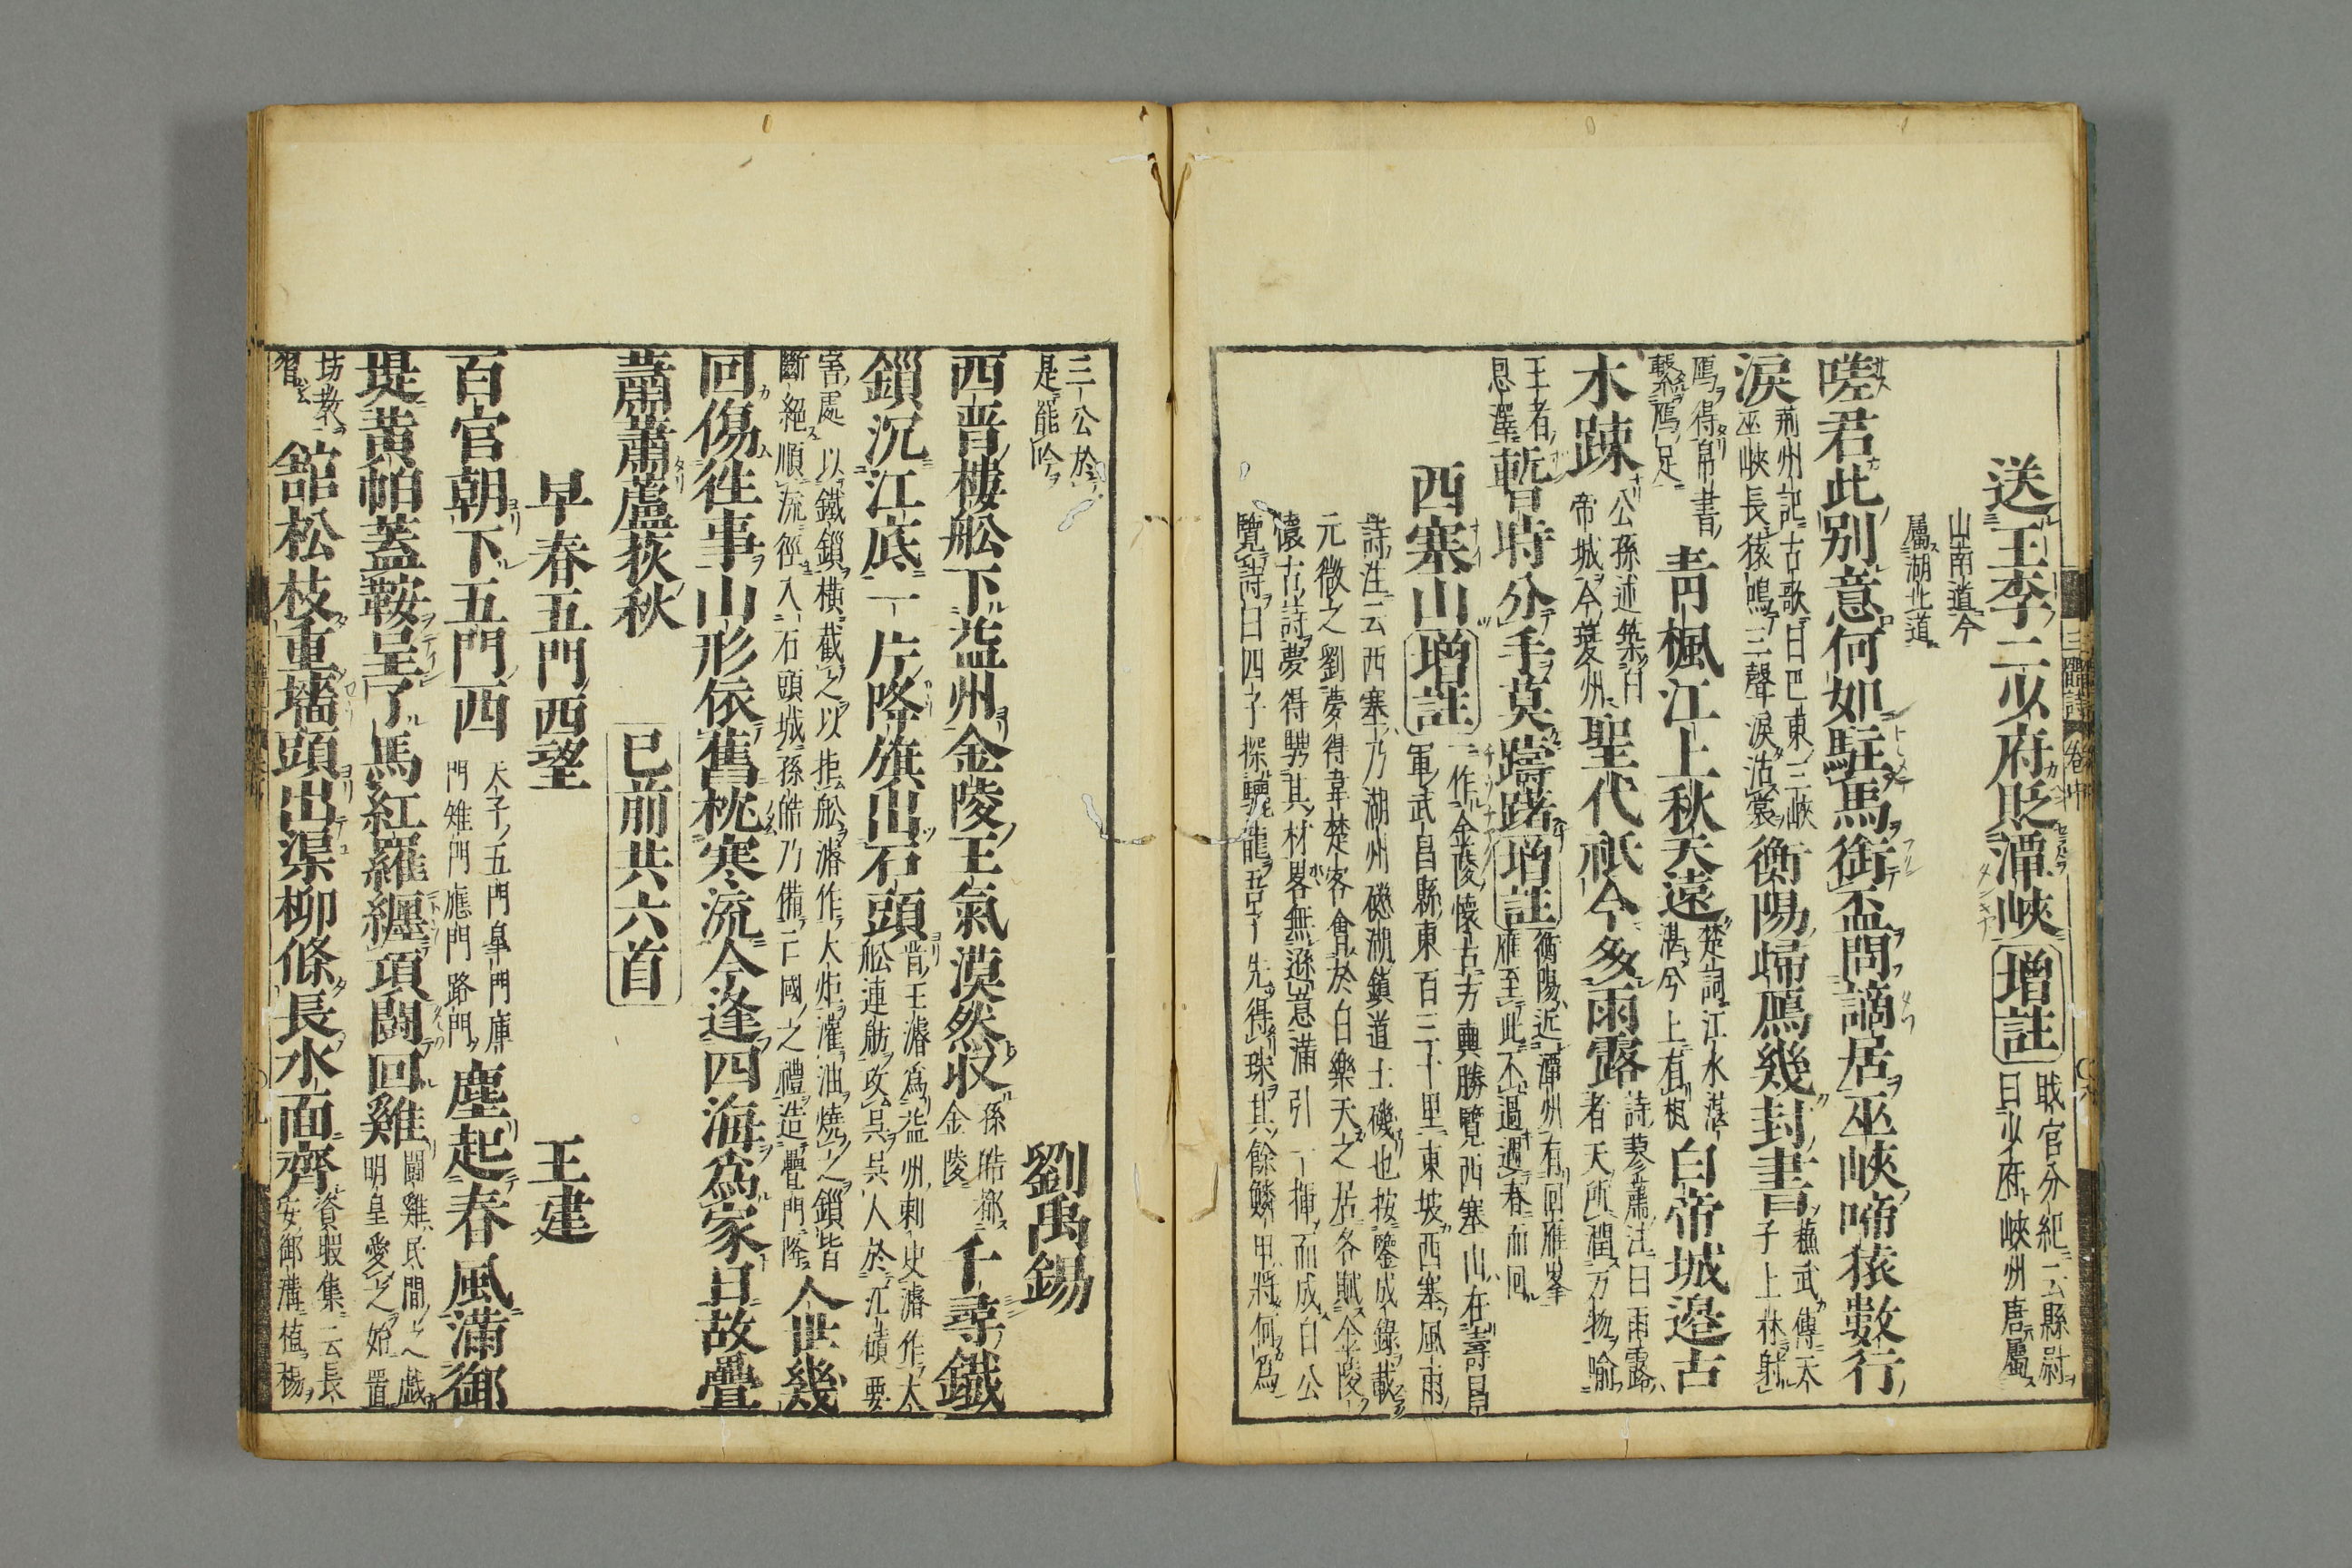 送王李二少府貶潭峽 增註 職官分紀云縣尉
曰少府峽州唐屬
山南道今
屬湖北道
嗟君此別意何如駐馬銜盃問謫居巫峽啼猿數行
淚 荊州記古歌曰巴東三峽
巫峽長猿鳴三聲淚沾裳 衡陽歸鴈幾封書 蘇武傳天
子上林射
鴈得帛書
繫鴈足 青楓江上秋天遠 楚詞江水湛
湛兮上有楓 白帝城邊古
木踈 公孫述築白
帝城今夔州 聖代祇今多雨露 詩蓼蕭注曰雨露
者天所潤万物喻
王者
恩澤 暫時分手莫躊躇 增註 衡陽近潭州有回雁峯
雁至此不過遇春而回
西塞山 增註 一作金陵懷古方輿勝覽西塞山在壽昌
軍武昌縣東百三十里東坡西塞風雨
詩注云西塞乃湖州磁湖鎮道士磯也按鑒戒錄載
元微之劉夢得韋楚客會於白樂天之居各賦金陵
懷古詩夢得騁其材畧無遜意滿引一揮而成白公
覽詩曰四子探驪龍吾子先得珠其餘鱗甲將何為
三公於
是罷吟 劉禹錫
西晋樓舩下益州金陵王氣漠然収 孫皓都
金陵 千尋鐵
鎻沉江底一片降旗出石頭 晋王濬為益州刺史濬作大
舩連舫攻吳吳人於江磧要
害處以鐵鎻橫截之以拒舩濬作大炬灌油燒之鎻皆
斷絕順流徑入石頭城孫皓乃備亡國之禮造壘門降 人世幾
回傷徃事山形依舊枕寒流今逢四海為家日故壘
蕭蕭蘆荻秋 已前共六首
早春五門西望 王建
百官朝下五門西 天子五門皐門庫
門雉門應門路門 塵起春風滿御
堤黃帕蓋鞍呈了馬紅羅纏項鬪回雞 鬪雞民間之戲
明皇愛之始置
坊教
習 舘松枝重墻頭出渠柳條長水面齊 資暇集云長
安御溝植楊
三體詩 卷中